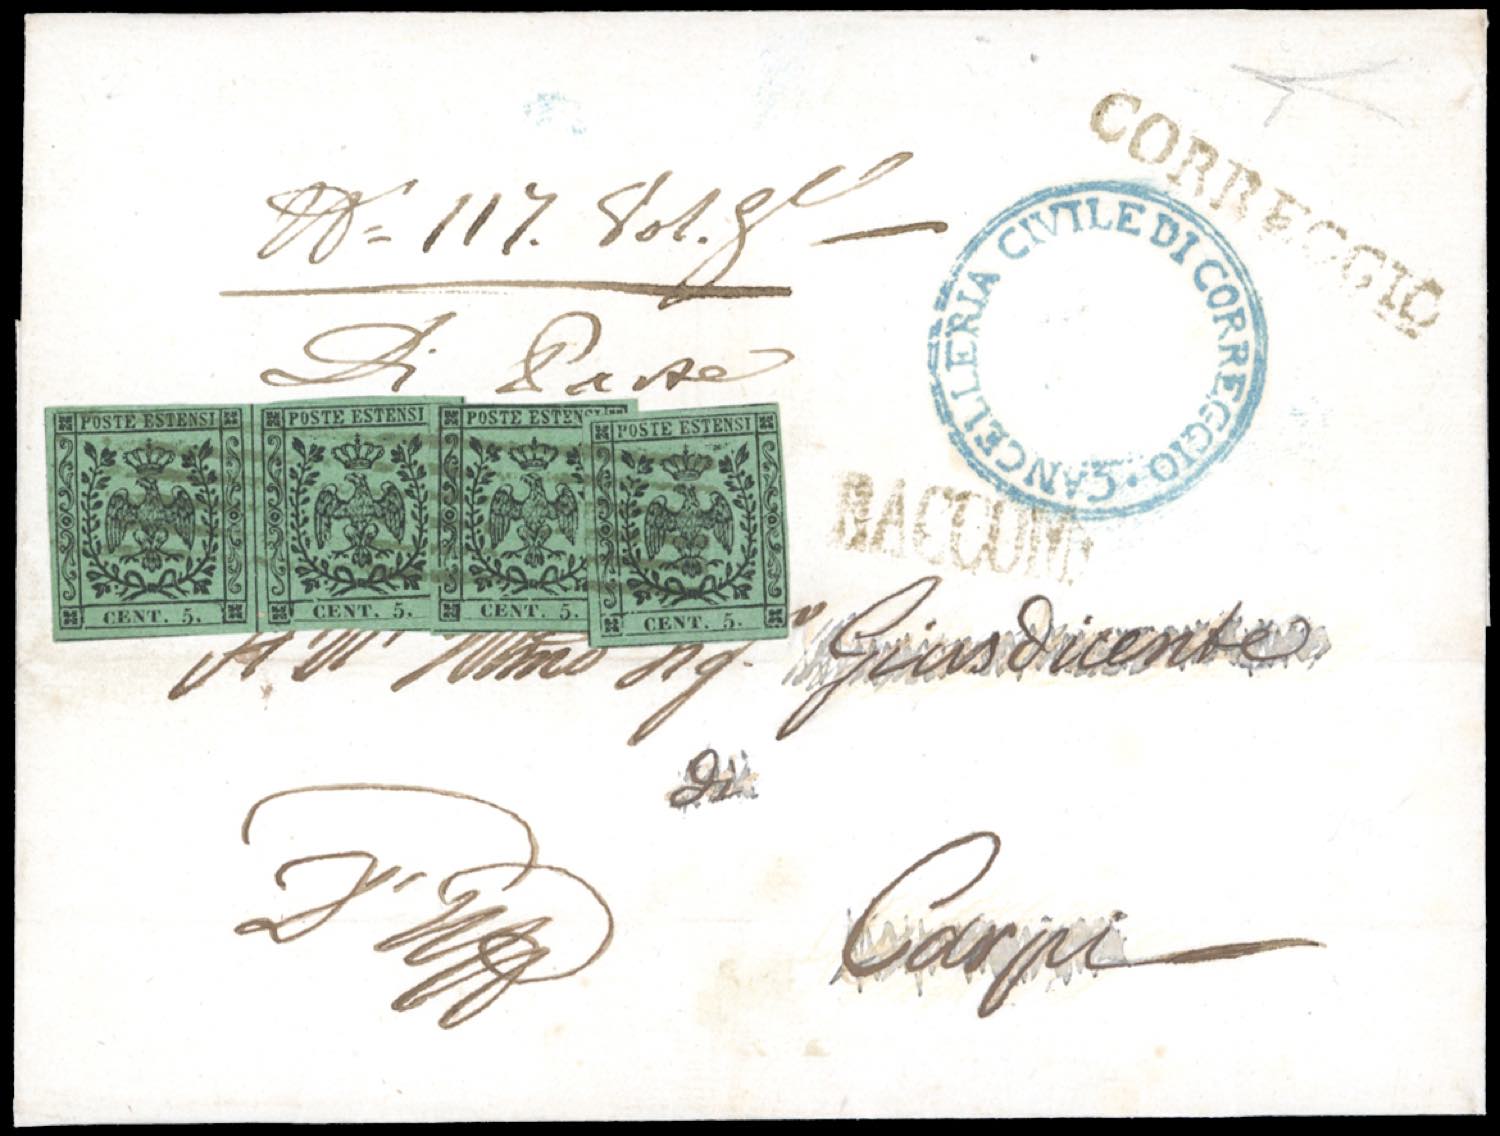 CORREGGIO
N.º 117. Vol. gle
CANCELLERIA CIVILE DI CORREGGIO
Di Parte
RACCOM
POSTE ESTENSI
CENT. 5.
POSTE ESTENSI
CENT. 5.
POSTE ESTENSI
CENT. 5.
POSTE ESTENSI
CENT. 5.
Sig.r Giusdicente
di
Carpi